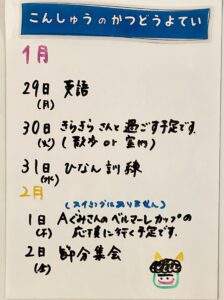 こんしゅうのかつどうよてい
1月
29日 英語
(月)
30日 きらきらさんと過ごす予定です。
(火) (散歩 or 室内)
31日 ひなん訓練
(水)
2月
(スイミングはありません)
1日 Aぐみさんのベルマーレカップの
(木) 応てんに行く予定です。
2日 節分集会
(金)